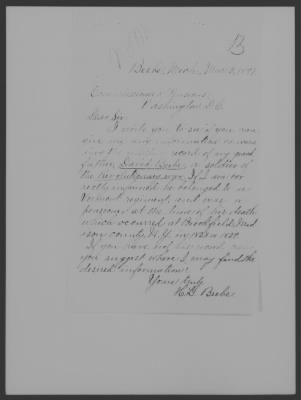 B
Beebe, Mich., Mar. 3, 1891
Commissioner of Pensions,
Washington D.C.
Dear Sir
I write you to see if you can
give me any information in
the record of my grand
father, David Beebe a soldier of
the Revolutionary war. If I am cor
rectly informed he belonged to a
Vermont regiment, and was a
pensioner at the time of his death
which occurred at Brookfield, Mad
ison county N.Y. in 1828 or 1829
If you have not his record can
you suggest where I may find the
desired information
Yours truly
H. D. Beebe